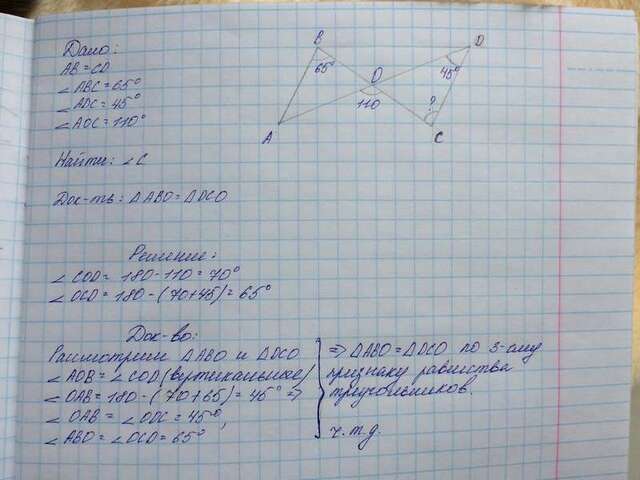 Дано:
AB = CD
∠ABC = 65°
∠ADC = 45°
∠AOC = 110°
Найти: ∠C
Док-ть: △ABO = △DCO
B
D
65°
O
45°
110
?
A
C
Решение:
∠COD = 180 - 110 = 70°
∠OCD = 180 - (70+45) = 65°
Док-во:
Рассмотрим △ABO и △DCO
∠AOB = ∠COD (вутикальные)
∠OAB = 180 - (70+65) = 45° ⇒
∠OAB = ∠ODC = 45°,
∠ABO = ∠OCD = 65°
⇒ △ABO = △DCO по 3-ему
признаку равенства
триугольников.
ч.т.д.